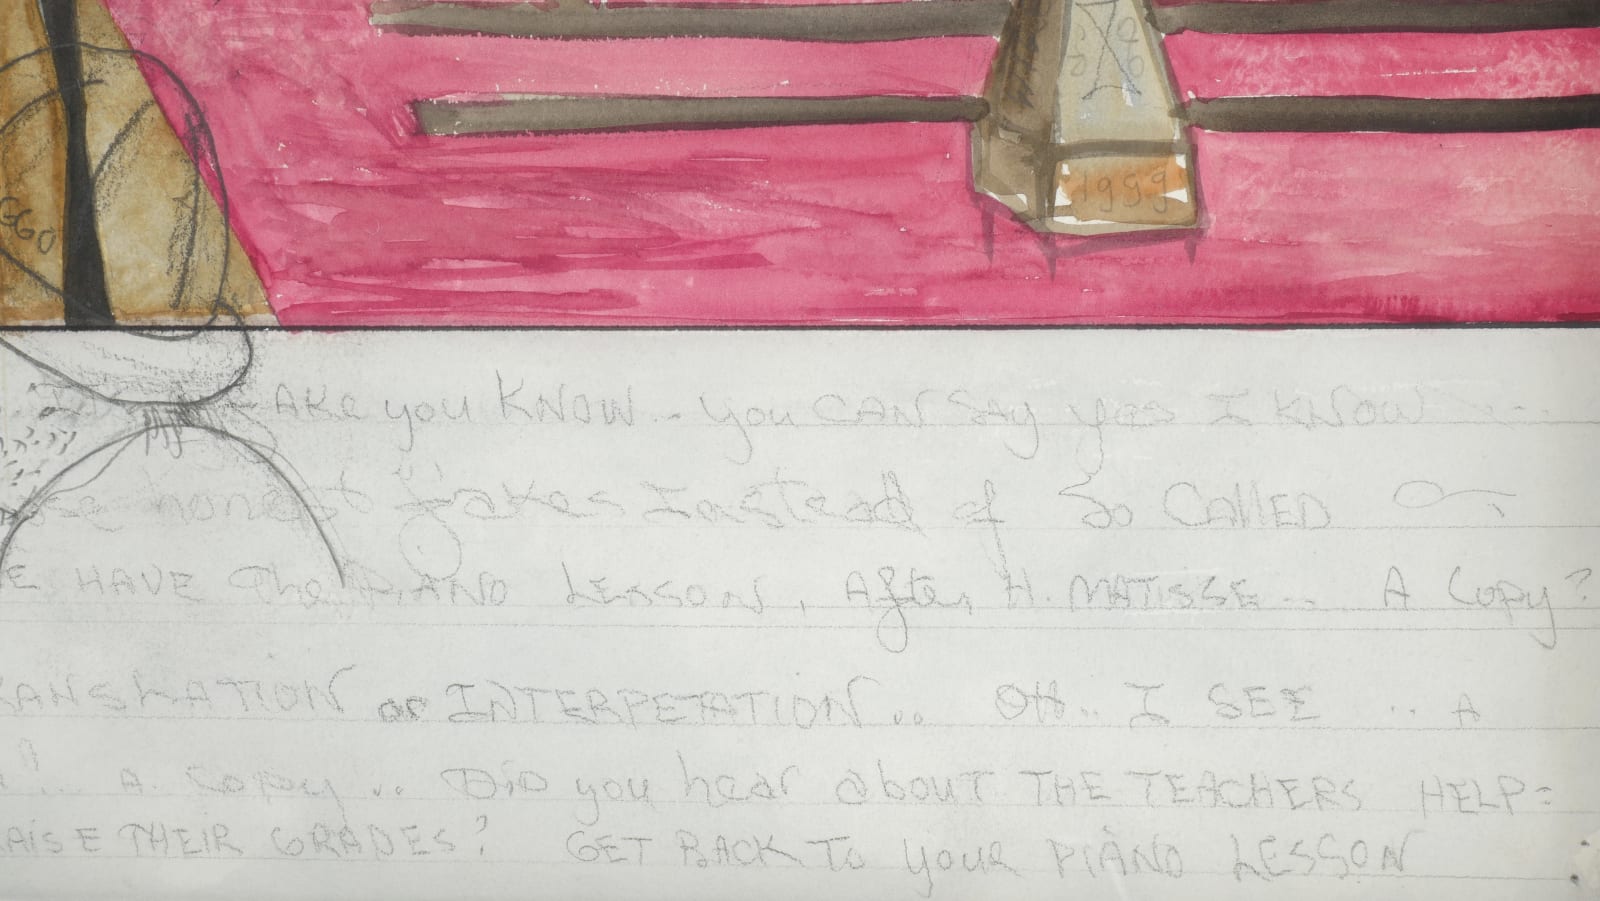 GGO
1999
FAKE you KNOW.. you CAN SAy yes I KNOW
honest "fakes" Instead of So CALLED
E HAVE The PIANO LESSON, After H. MATISSE.. A Copy?
RANSLATION or INTERPETATION.. OH.. I SEE .. A
A Copy.. DiD you hear about THE TEACHERS HELP=
RAISE THEIR GRADES? GET BACK To youR PIANO LESSON